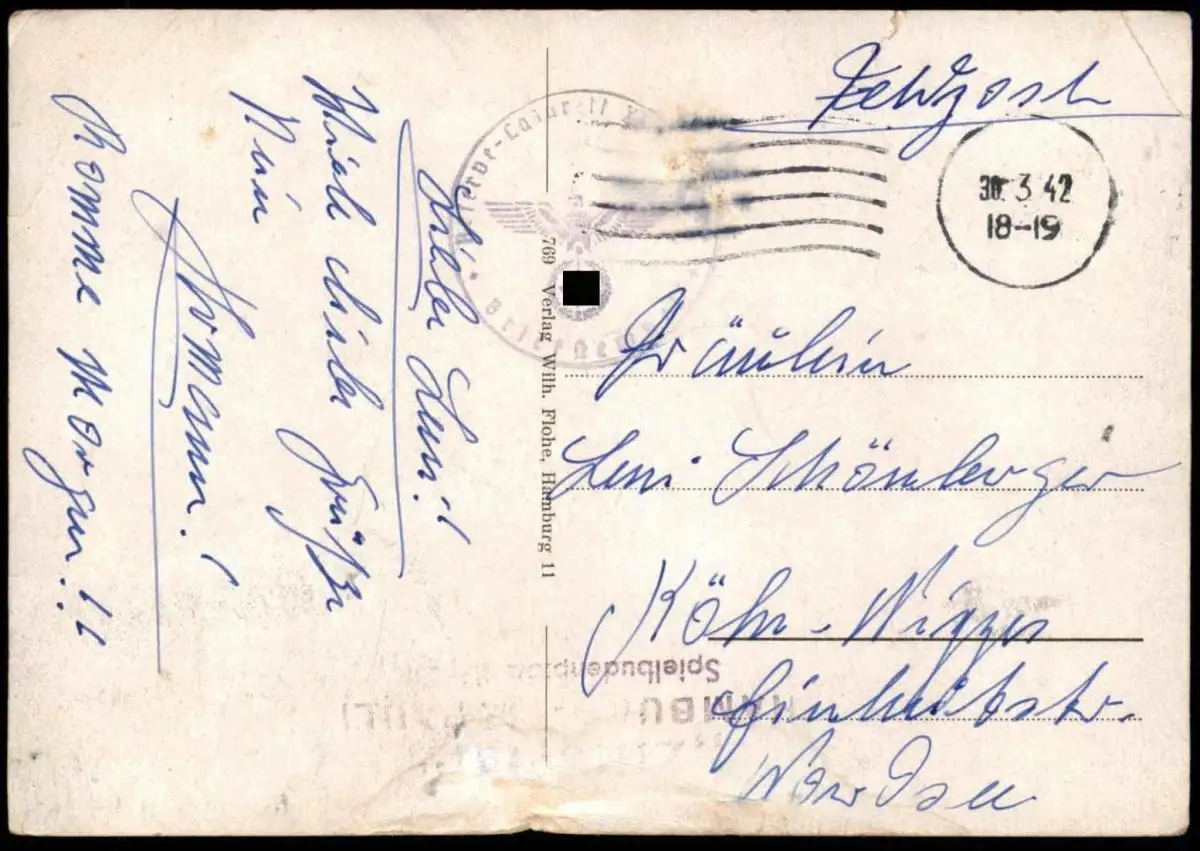 Feldpost
30. 3. 42
18-19
Reserve-Lazarett
Liebe Leni!
Viele liebe Grüße
Dein
Hermann!
Komme Morgen!!
769 Verlag Wilh. Flohe, Hamburg 11
Fräulein
Leni Schönberger
Köln-Nippes
Spielbudenplatz
HAMBURG